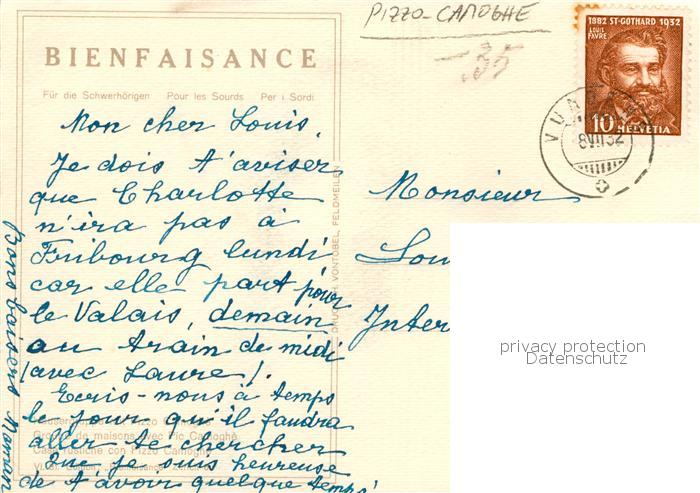 PIZZO-CAMOGHE
-.35
BIENFAISANCE
Für die Schwerhörigen Pour les Sourds Per i Sordi
1882 ST-GOTHARD 1932
LOUIS FAVRE
10 HELVETIA
8VII32
Mon cher Louis,
Je dois t'aviser
que Charlotte
n'ira pas à
Fribourg lundi
car elle part pour
le Valais, demain
au train de midi
(avec Laure).
Ecris-nous à temps
le jour qu'il faudra
aller te chercher
Que je suis heureuse
de t'avoir quelque temps!
Bons baisers Maman
Monsieur
Lou
Inter
VONTOBEL, FELDMEILEN
Pizzo
de maisons avec Pic Camoghè
Case rustiche con Pizzo Camoghè
privacy protection
Datenschutz